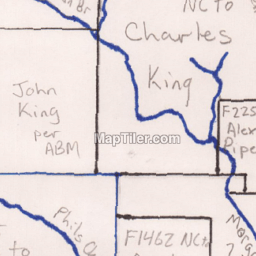 Br
NC to
Charles
King
John
King
per
ABM
F225
Alex
Pipe
MapTiler.com
Phils
F1462 NC
to